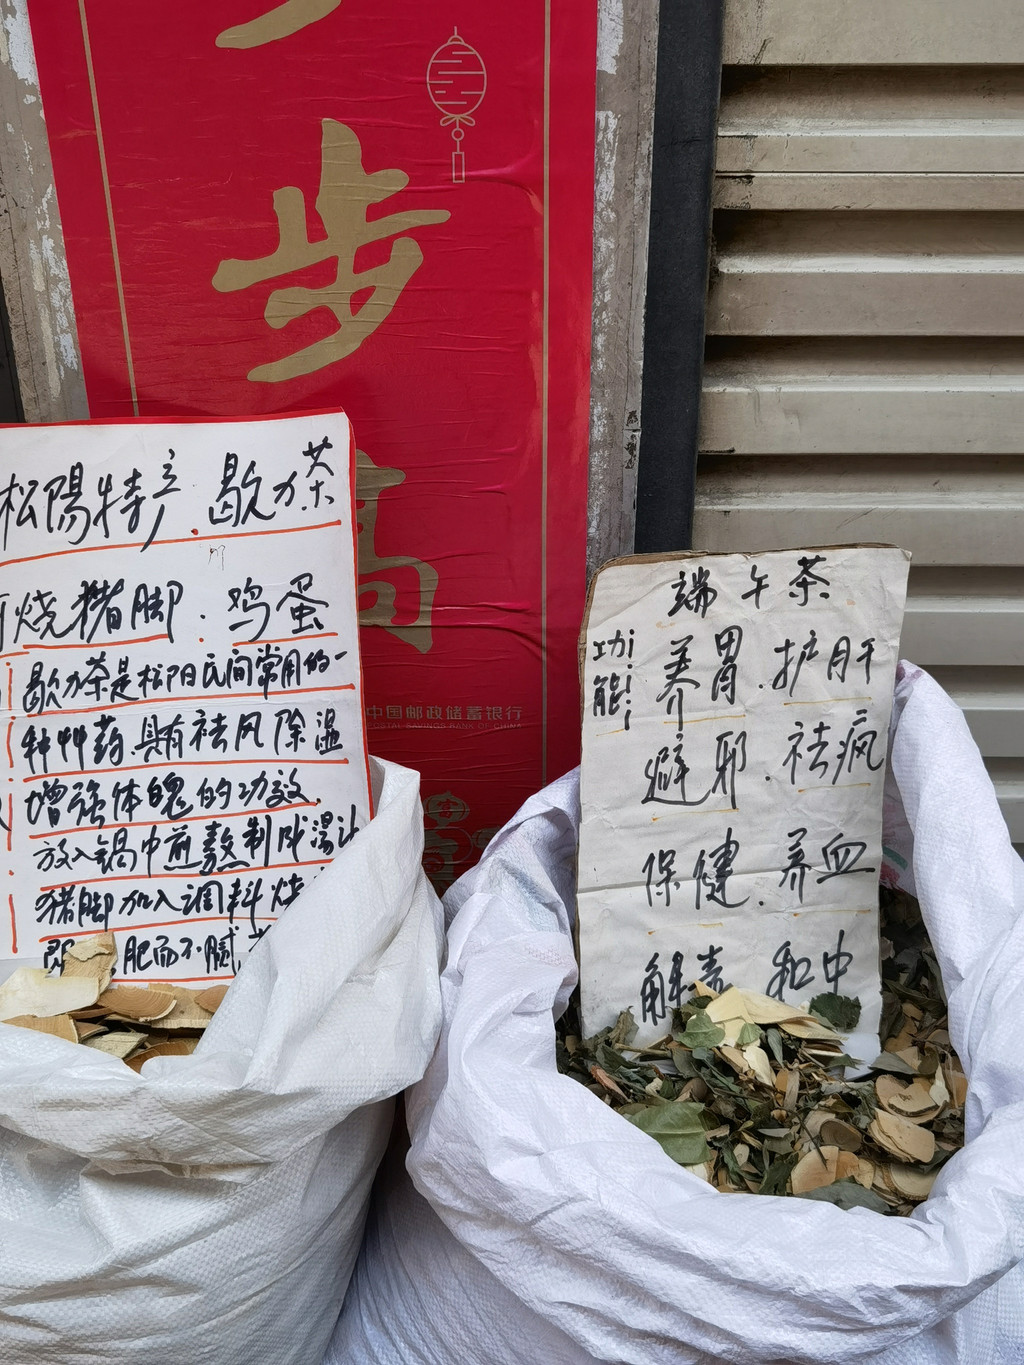 步
高
中国邮政储蓄银行
POSTAL SAVINGS BANK OF CHINA
松陽特产.歇力茶
烧猪脚.鸡蛋
歇力茶是松阳民间常用的一
种艸药.具有祛风除湿
增强体魄的功效.
放入锅中煎熬制成湯汁
猪脚加入调料烧
即 肥而不腻
端午茶
功能
养胃.护肝
避邪.祛疯
保健.养血
解毒 和中